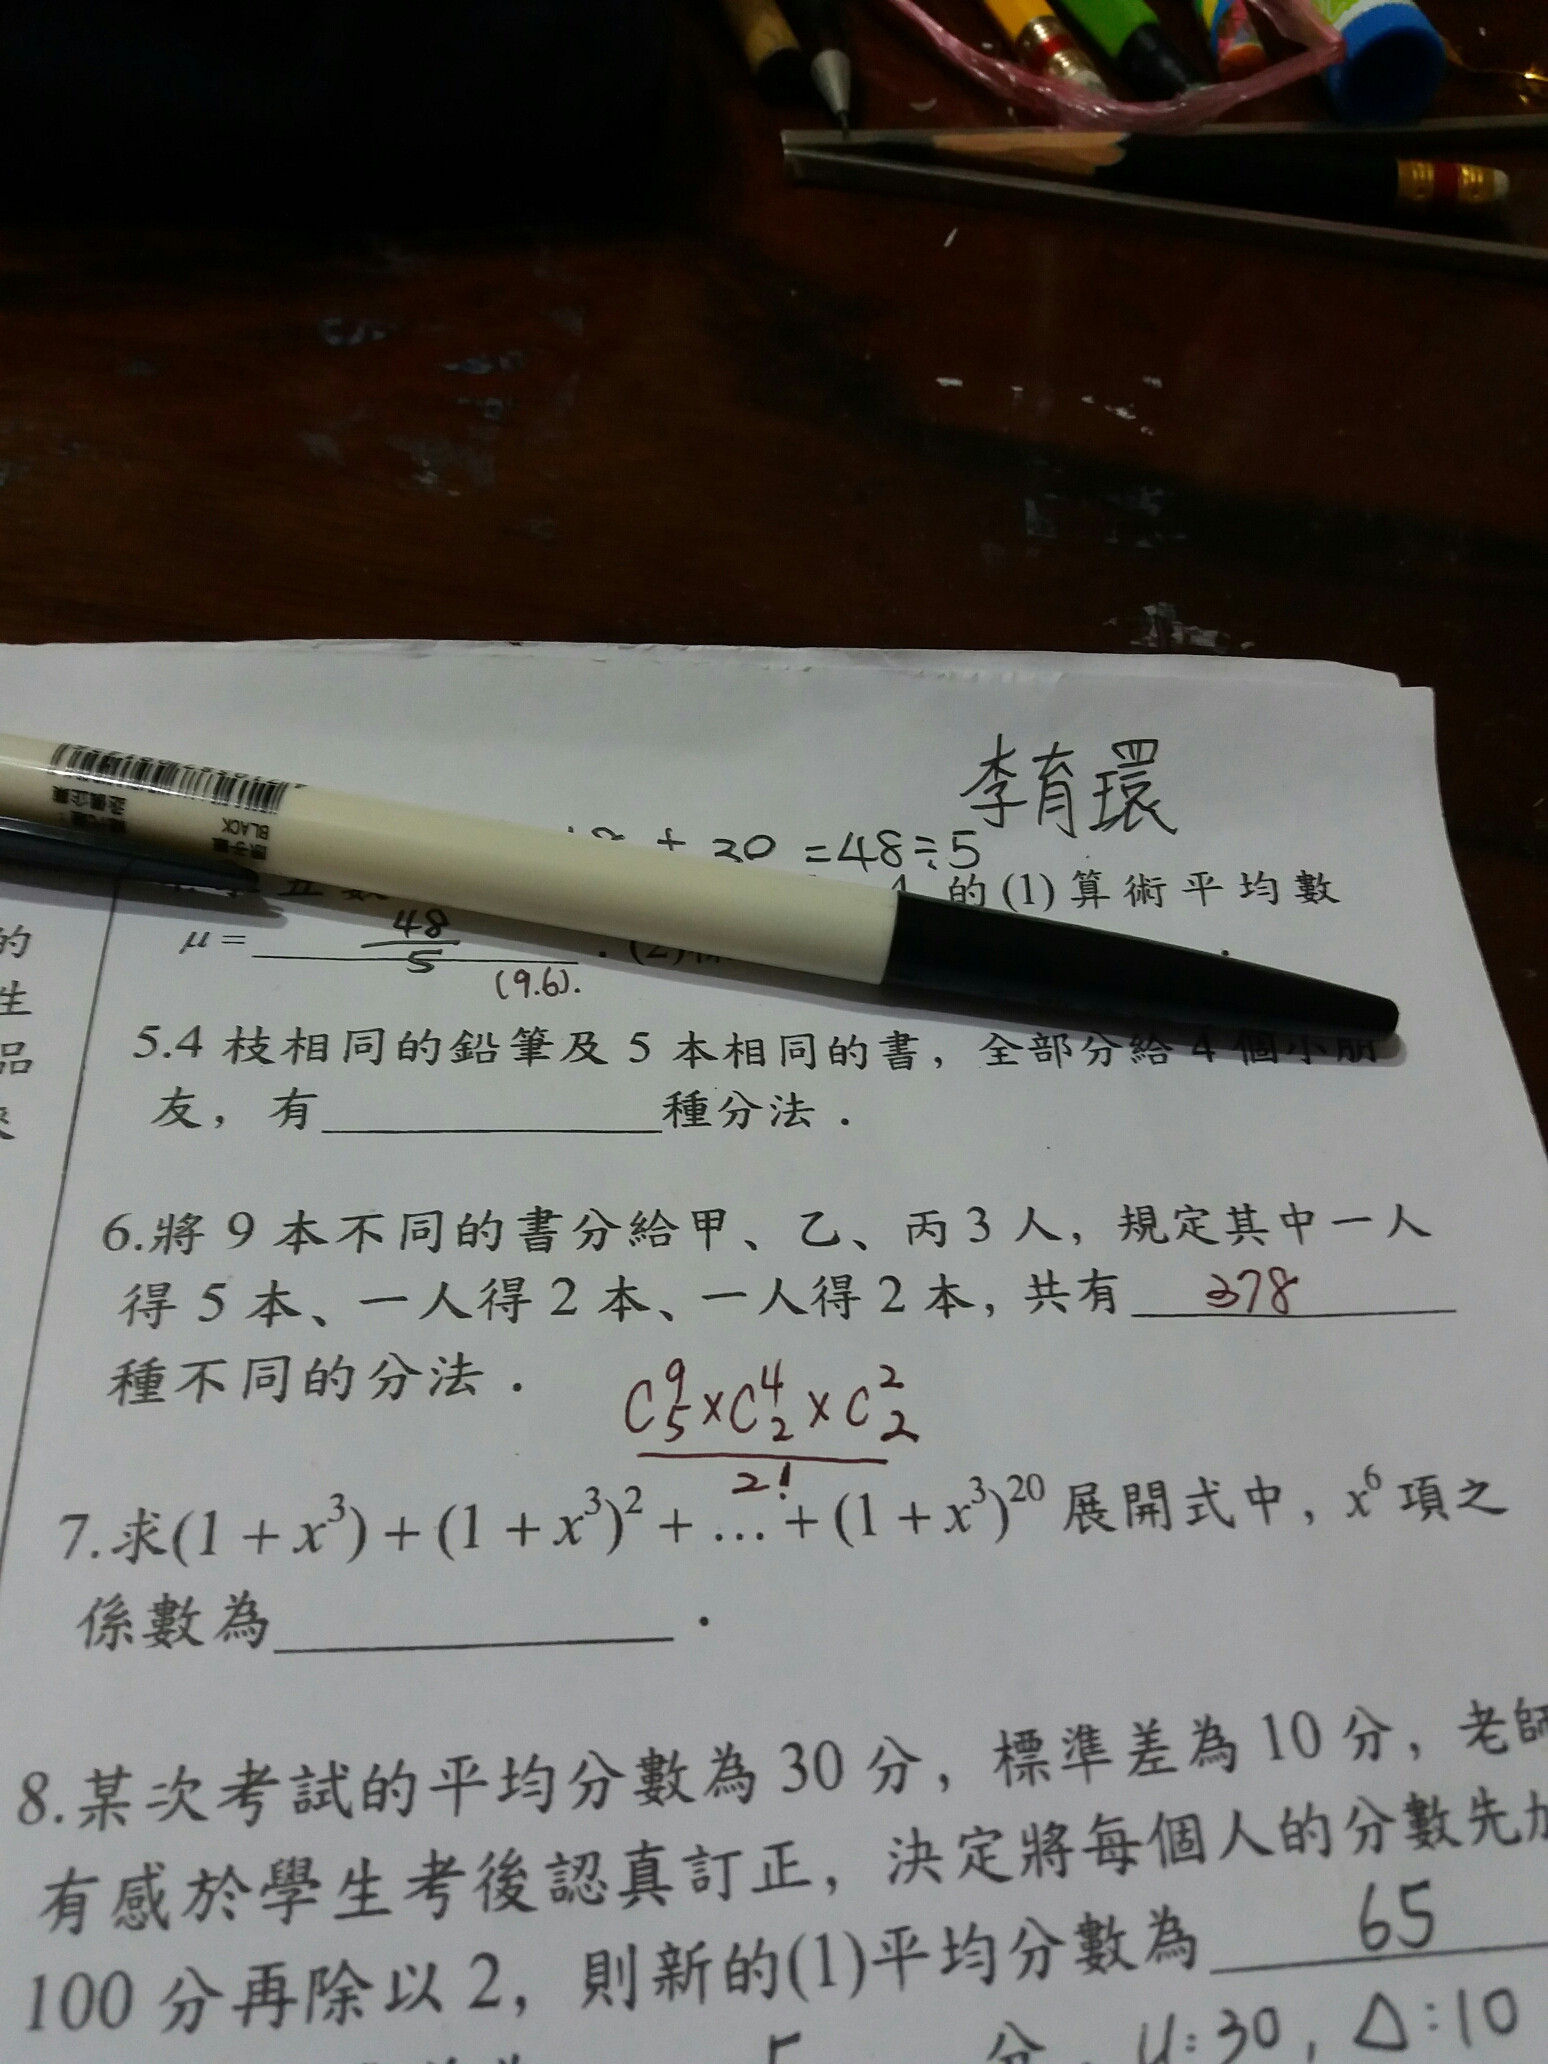 李育環
+ 30 = 48÷5
的(1)算術平均數
μ= 48/5 .(2)
(9.6).
5.4 枝相同的鉛筆及 5 本相同的書，全部分給 4 個小朋
友，有____________種分法．
6.將 9 本不同的書分給甲、乙、丙 3 人，規定其中一人
得 5 本、一人得 2 本、一人得 2 本，共有 378
種不同的分法．
C⁹₅×C⁴₂×C²₂
2!
7.求(1 + x³) + (1 + x³)² + … + (1 + x³)²⁰ 展開式中，x⁶ 項之
係數為____________．
8.某次考試的平均分數為 30 分，標準差為 10 分，老師
有感於學生考後認真訂正，決定將每個人的分數先加
100 分再除以 2，則新的(1)平均分數為 65
5 分. μ:30, Δ:10
的
生
品
BLACK